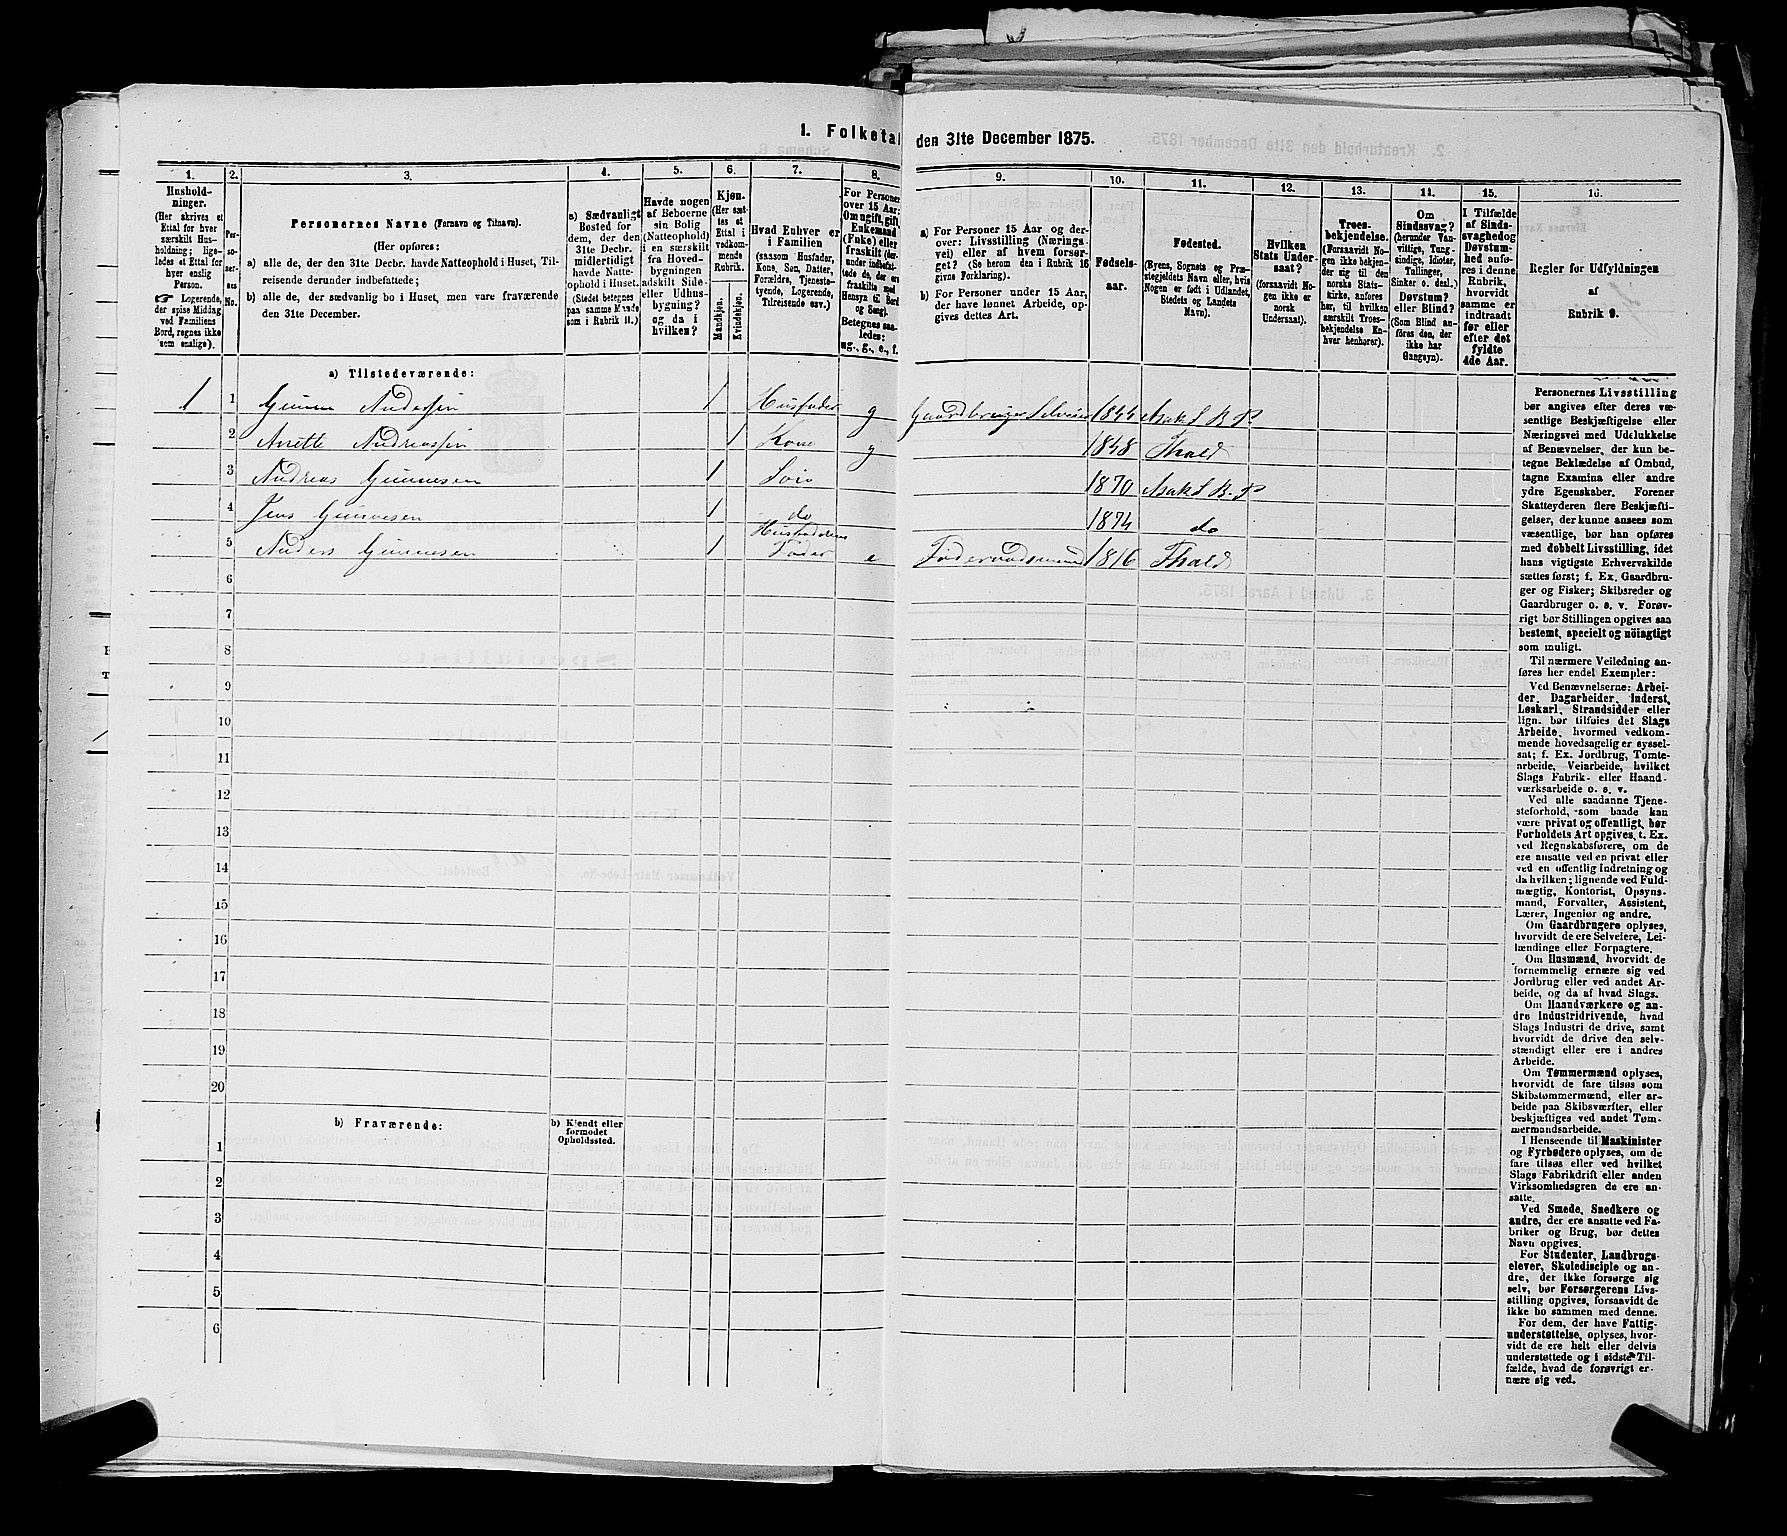 1. Folketal den 31te December 1875.
1. 2. 3. 4. 5. 6. 7. 8. 9. 10. 11. 12. 13. 14. 15. 16.
Hushold-
ninger.
(Her skrives et
Ettal for hver
særskilt Hus-
holdning; lige-
ledes et Ettal for
hver enslig
Person.
☞ Logerende,
der spise Middag
ved Familiens
Bord, regnes ikke
som enslige).
Per-
so-
ner-
nes
No.
Personernes Navne (Fornavn og Tilnavn).
(Her opføres:
a) alle de, der den 31te Decbr. havde Natteophold i Huset, Til-
reisende derunder indbefattede;
b) alle de, der sædvanlig bo i Huset, men vare fraværende
den 31te December.
a) Sædvanligt
Bosted for
dem, der den
31te Decbr.
midlertidigt
havde Natte-
ophold i Huset.
(Stedet betegnes
paa samme Maade
som i Rubrik 11.)
Havde nogen
af Beboerne
sin Bolig
(Natteophold)
i en særskilt
fra Hoved-
bygningen
adskilt Side-
eller Udhus-
bygning?
og da i
hvilken?
Kjøn.
(Her sæt-
tes et
Ettal i
vedkom-
mende
Rubrik.
Mandkjøn.
Kvindekjøn.
Hvad Enhver er
i Familien
(saasom Husfader,
Kone, Søn, Datter,
Forældre, Tjeneste-
tyende, Logerende,
Tilreisende osv.)
For Personer
over 15 Aar:
Om ugift, gift,
Enkemand
(Enke) eller
fraskilt
Betegnes saa-
ledes:
ug., g., e., f.
a) For Personer 15 Aar og der-
over: Livsstilling (Nærings-
vei) eller af hvem forsør-
get? (Se herom den i Rubrik 16
givne Forklaring).
b) For Personer under 15 Aar,
der have lønnet Arbeide, op-
gives dettes Art.
Fødsels-
aar.
Fødested.
(Byens, Sognets og Præ-
stegjeldets Navn eller, hvis
Nogen er født i Udlandet,
Stedets og Landets
Navn).
Hvilken
Stats Under-
saat?
(forsaavidt No-
gen ikke er
norsk
Undersaat).
Troes-
bekjendelse.
(Forsaavidt No-
gen ikke bekjen-
der sig til den
norske Stats-
kirke, anføres
her, til hvilken
særskilt Troes-
bekjendelse En-
hver henhører).
Om
Sindssvag?
(herunder Van-
vittige, Tung-
sindige, Idioter,
Tullinger,
Sinker o. desl.)
Døvstum?
eller Blind?
(Som Blind an-
føres den, der
ikke har
Gangsyn).
I Tilfælde
af Sinds-
svaghed og
Døvstum-
hed anfø-
res i denne
Rubrik,
hvorvidt
samme er
indtraadt
før eller
efter det
fyldte
4de Aar.
Regler for Udfyldningen
af
Rubrik 9.
a) Tilstedeværende:
1 1 Gunnar Anderssen 1 Husfader g Gaardbruger Selveier 1844 Asak S. B. P.
2 Anette Andreassen 1 Kone g 1848
3 Andreas Gunnesen 1 Søn 1870 Asak S. B. P
4 Jens Gunnesen 1 do 1874 do
5 Anders Gunnesen 1 Husfaderens Fader e Føderaadsmand 1816
6
7
8
9
10
11
12
13
14
15
16
17
18
19
20
b) Fraværende:
b) Kjendt eller
formodet
Opholdssted.
1
2
3
4
5
6
Personernes Livsstilling
bør angives efter deres væ-
sentlige Beskjæftigelse eller
Næringsvei med Udelukkelse
af Benævnelser, der kun be-
tegne Beklædelse af Ombud,
tagne Examina eller andre
ydre Egenskaber. Forener
Skatteyderen flere Beskjæfti-
gelser, der kunne ansees som
væsentlige, bør han opføres
med dobbelt Livsstilling, idet
hans vigtigste Erhvervskilde
sættes først; f. Ex. Gaardbru-
ger og Fisker; Skibsreder og
Gaardbruger o. s. v. Forøv-
rigt bør Stillingen opgives saa
bestemt, specielt og nöiagtigt
som muligt.
Til nærmere Veiledning an-
føres her endel Exempler:
Ved Benævnelserne: Arbei-
der, Dagarbeider, Inderst,
Løskarl, Strandsidder eller
lign. bør tilføies det Slags
Arbeide, hvormed vedkom-
mende hovedsagelig er syssel-
sat; f. Ex. Jordbrug, Tomte-
arbeide, Veiarbeide, hvilket
Slags Fabrik- eller Haand-
værksarbeide o. s. v.
Ved alle saadanne Tjene-
steforhold, som baade kan
være privat og offentligt, bør
Forholdets Art opgives, t. Ex.
ved Regnskabsførere, om de
ere ansatte ved en privat eller
ved en offentlig Indretning og
da hvilken; lignende ved Fuld-
mægtig, Kontorist, Opsyns-
mand, Forvalter, Assistent,
Lærer, Ingeniør og andre.
Om Gaardbrugere oplyses,
hvorvidt de ere Selveiere, Lei-
lændinge eller Forpagtere.
Om Husmænd, hvorvidt de
fornemmelig ernære sig ved
Jordbrug eller ved andet Ar-
beide, og da af hvad Slags.
Om Haandværkere og an-
dre Industridrivende, hvad
Slags Industri de drive, samt
hvorvidt de drive den selv-
stændigt eller ere i andres
Arbeide.
Om Tømmermænd oplyses,
hvorvidt de fare tilsøs som
Skibstømmermænd, eller ar-
beide paa Skibsværfter, eller
beskjæftiges ved andet Tøm-
mermandsarbeide.
I Henseende til Maskinister
og Fyrbødere oplyses, om de
fare tilsøs eller ved hvilket
Slags Fabrikdrift eller anden
Virksomhedsgren de ere an-
satte.
Ved Smede, Snedkere og
andre, der ere ansatte ved Fa-
briker og Brug, bør dettes
Navn opgives.
For Studenter, Landbrugs-
elever, Skoledisciple og an-
dre, der ikke forsørge sig
selv, bør Forsørgerens Livs-
stilling opgives, forsaavidt de
ikke bo sammen med denne.
For dem, der have Fattig-
understøttelse, oplyses, hvor-
vidt de ere helt eller delvis
understøttede og i sidste Til-
fælde, hvad de forøvrigt er-
nære sig ved.